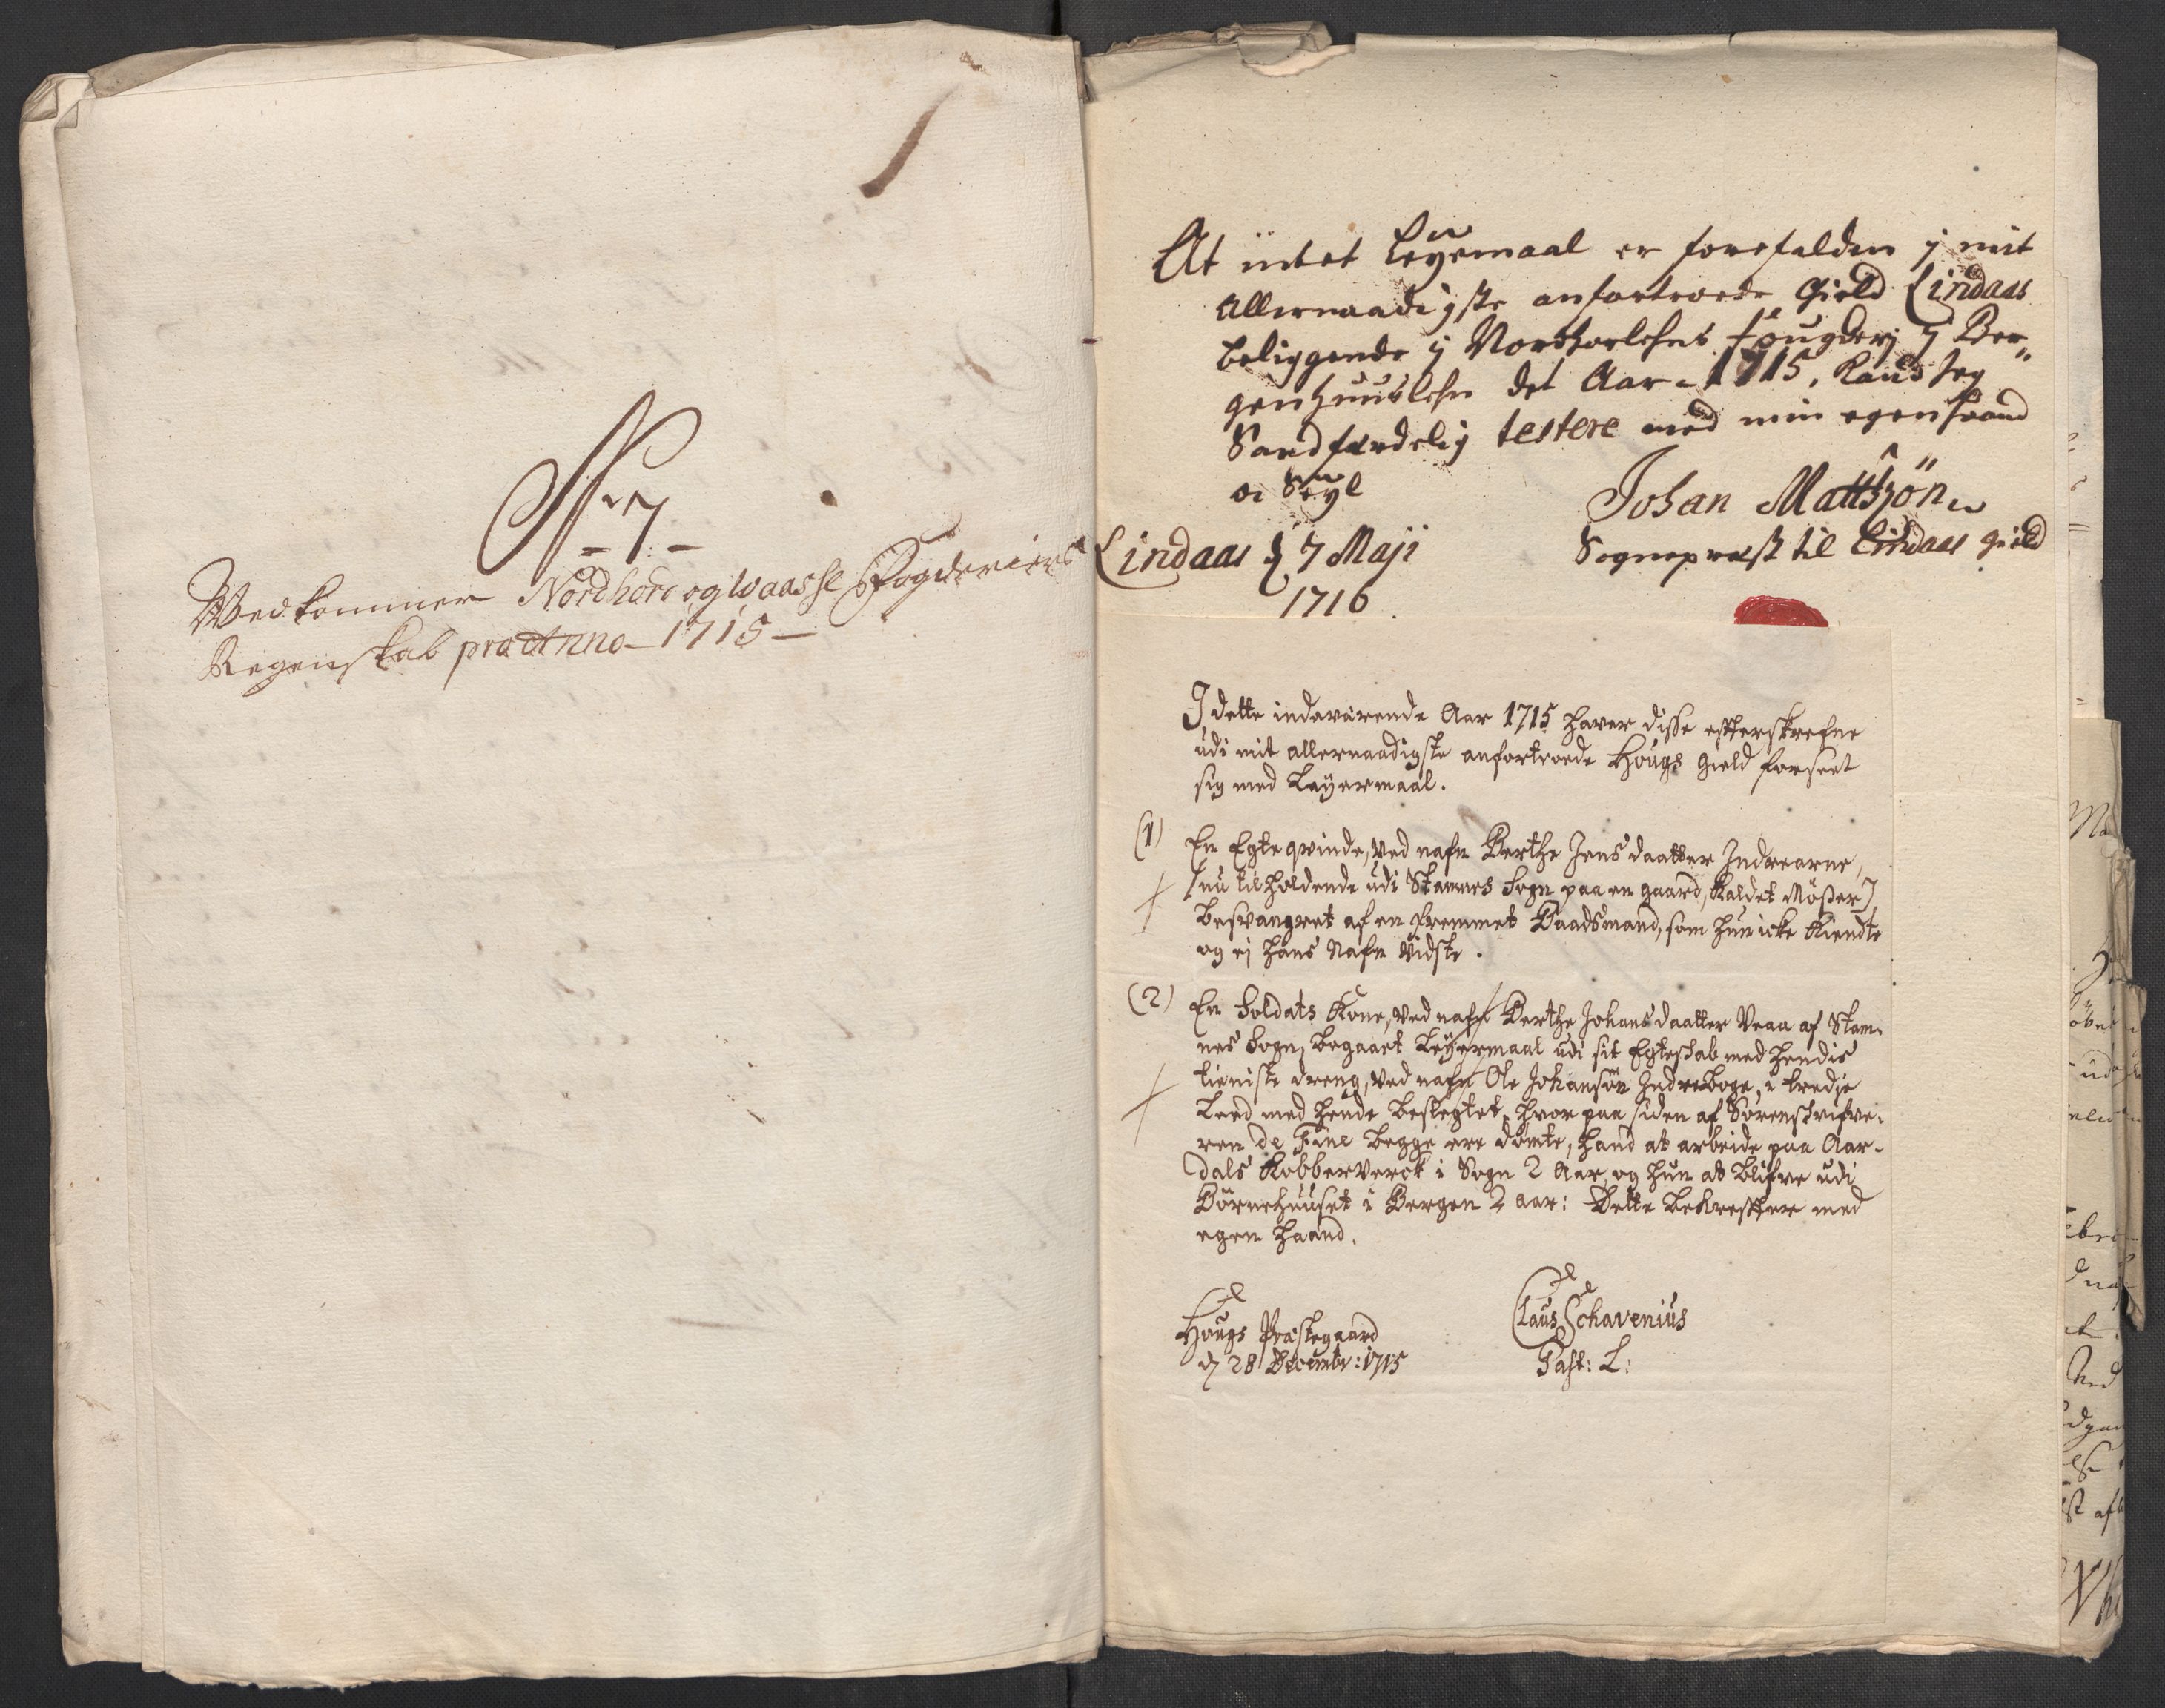 No 7
Wedkommer Nordhore og Waasse Fogderiers
Regenskab pro Anno 1715
At intet Leyermaal er forefalden i mit
Allernaadigste anfortroede Gield Lindaas
beliggende i Nordhorlehns fougderj i Ber„
genhuuslehn det Aar 1715, Kand Jeg
Sandfærdelig testere med min egen haand
oc Seyl
Johan Mattsøn
Sognepræst til Lindaas gield
Lindaas d 7 Maji
1716
I dette indeværende Aar 1715 haver disse efterskrefne
udi mit allernaadigste anfortroede Hougs Gield forseet
sig med Leyermaal.
(1) En Egte qvinde, ved nafn Berthe Jensdaatter Indrearne,
(nu tilholdende udi Stamnes Sogn paa en gaard, kaldet Möster)
besvangret af en fremmet Baadsmand, som hun icke kiendte
og ej hans Nafn vidste.
(2) En Soldats Kone, ved nafn Berthe Johansdaatter Veaa af Stam-
nes Sogn, begaaet Leyermaal udi sit Egteskab med hendis
tieniste dreng, ved nafn Ole Johansön Indreboge, i tredje
Leed med hende beslegtet, hvor paa siden af Sorenskrifve-
ren de Fine begge ere dömte, hand at arbeide paa Aar-
dals Kobberverck i Sogn 2 Aar, og hun at blifve udi
Börnehuuset i Bergen 2 aar: Dette bekrefter med
egen haand.
Hougs Præstegaard
d 28 Decembr: 1715
Claus Schavenius
Past: L: